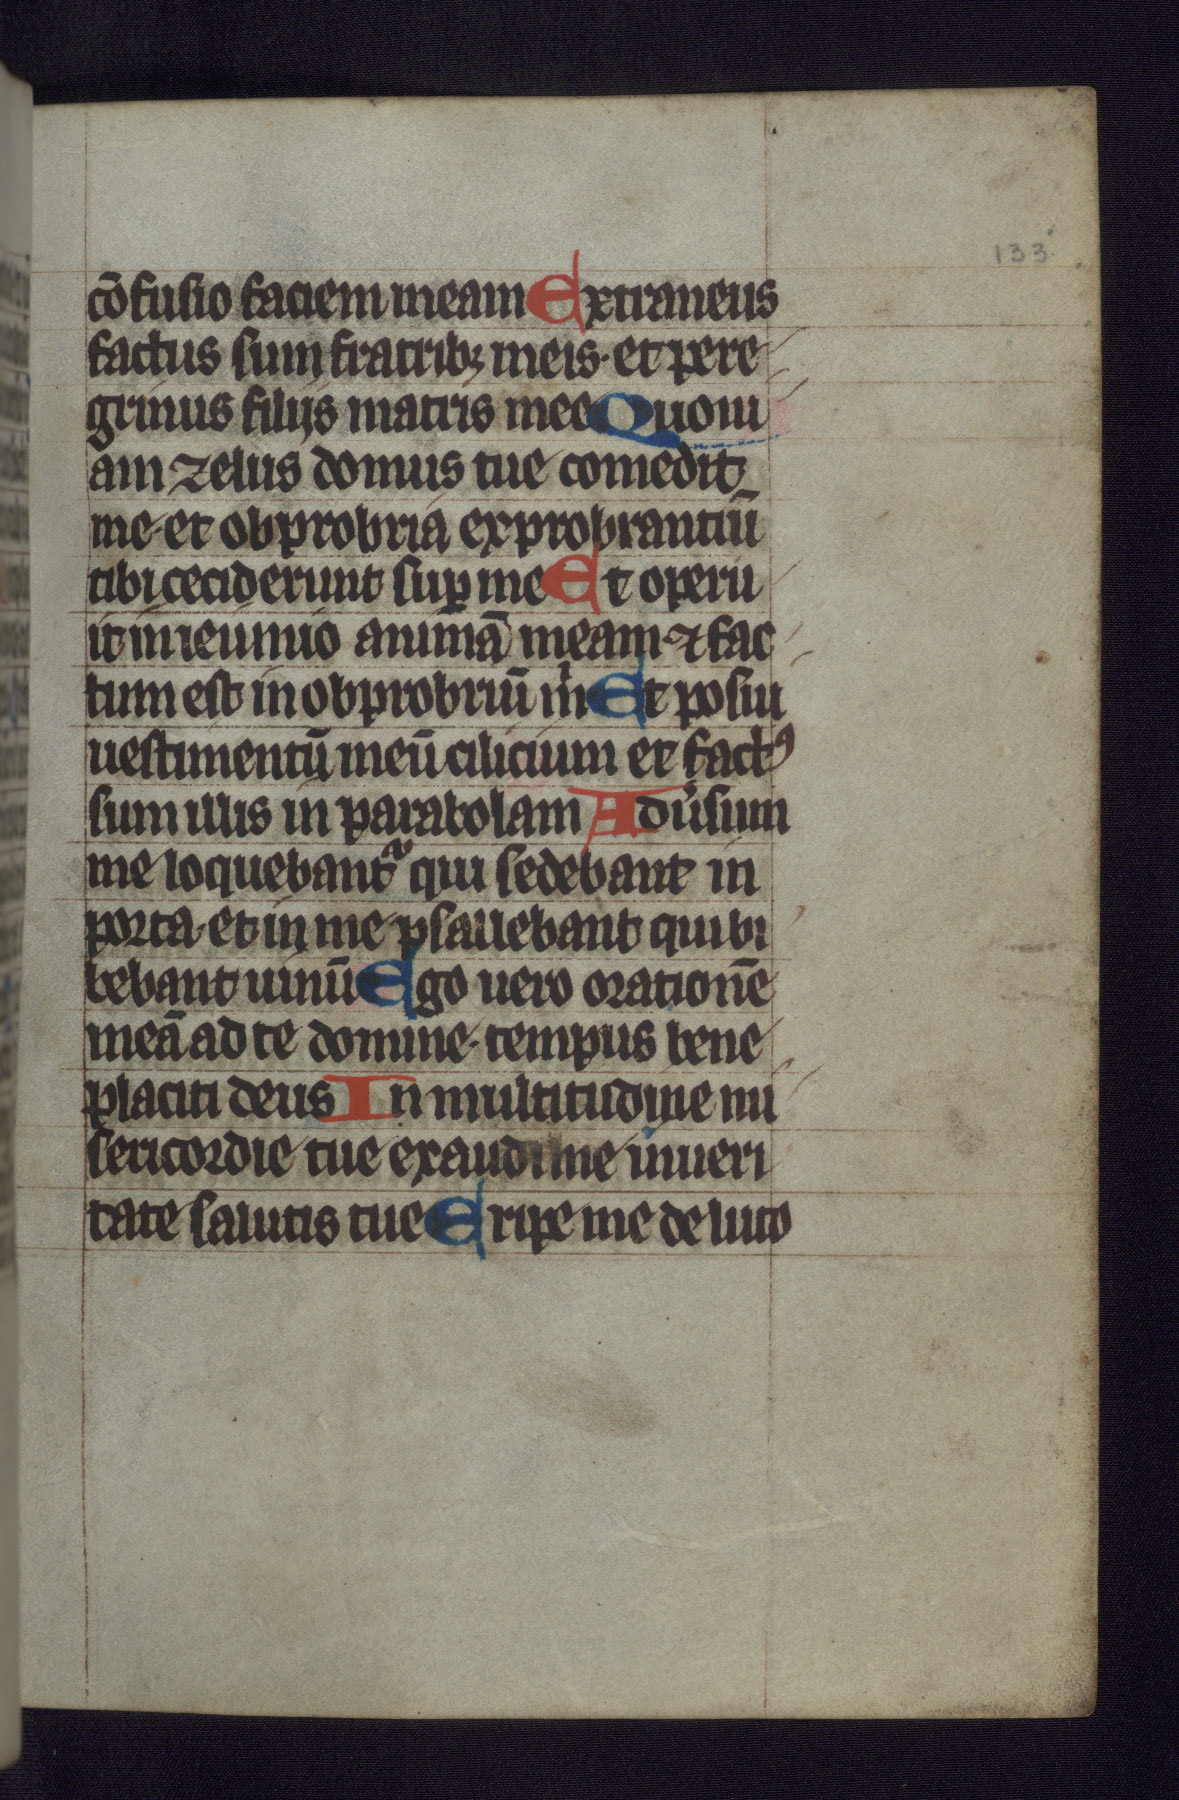 133
cōfusio faciem meam Extraneus
factus sum fratribꝫ meis· et pere
grinus filijs matris mee Quoni
am zelus domus tue comedit
me· et obprobria exprobrantiū
tibi ceciderunt suꝑ me Et operu
it in ieiunio animā meam ⁊ fac
tum est in obprobriū mͥ Et posui
uestimentū meū cilicium et factꝰ
sum illis in parabolam Adu̓sum
me loquebant᷑ qui sedebant in
porta· et in me psallebant qui bi
bebant uinū Ego uero orationē
meā ad te domine· tempus bene
placiti deus In multitudine mi
sericordie tue exaudi me in ueri
tate salutis tue Eripe me de luto